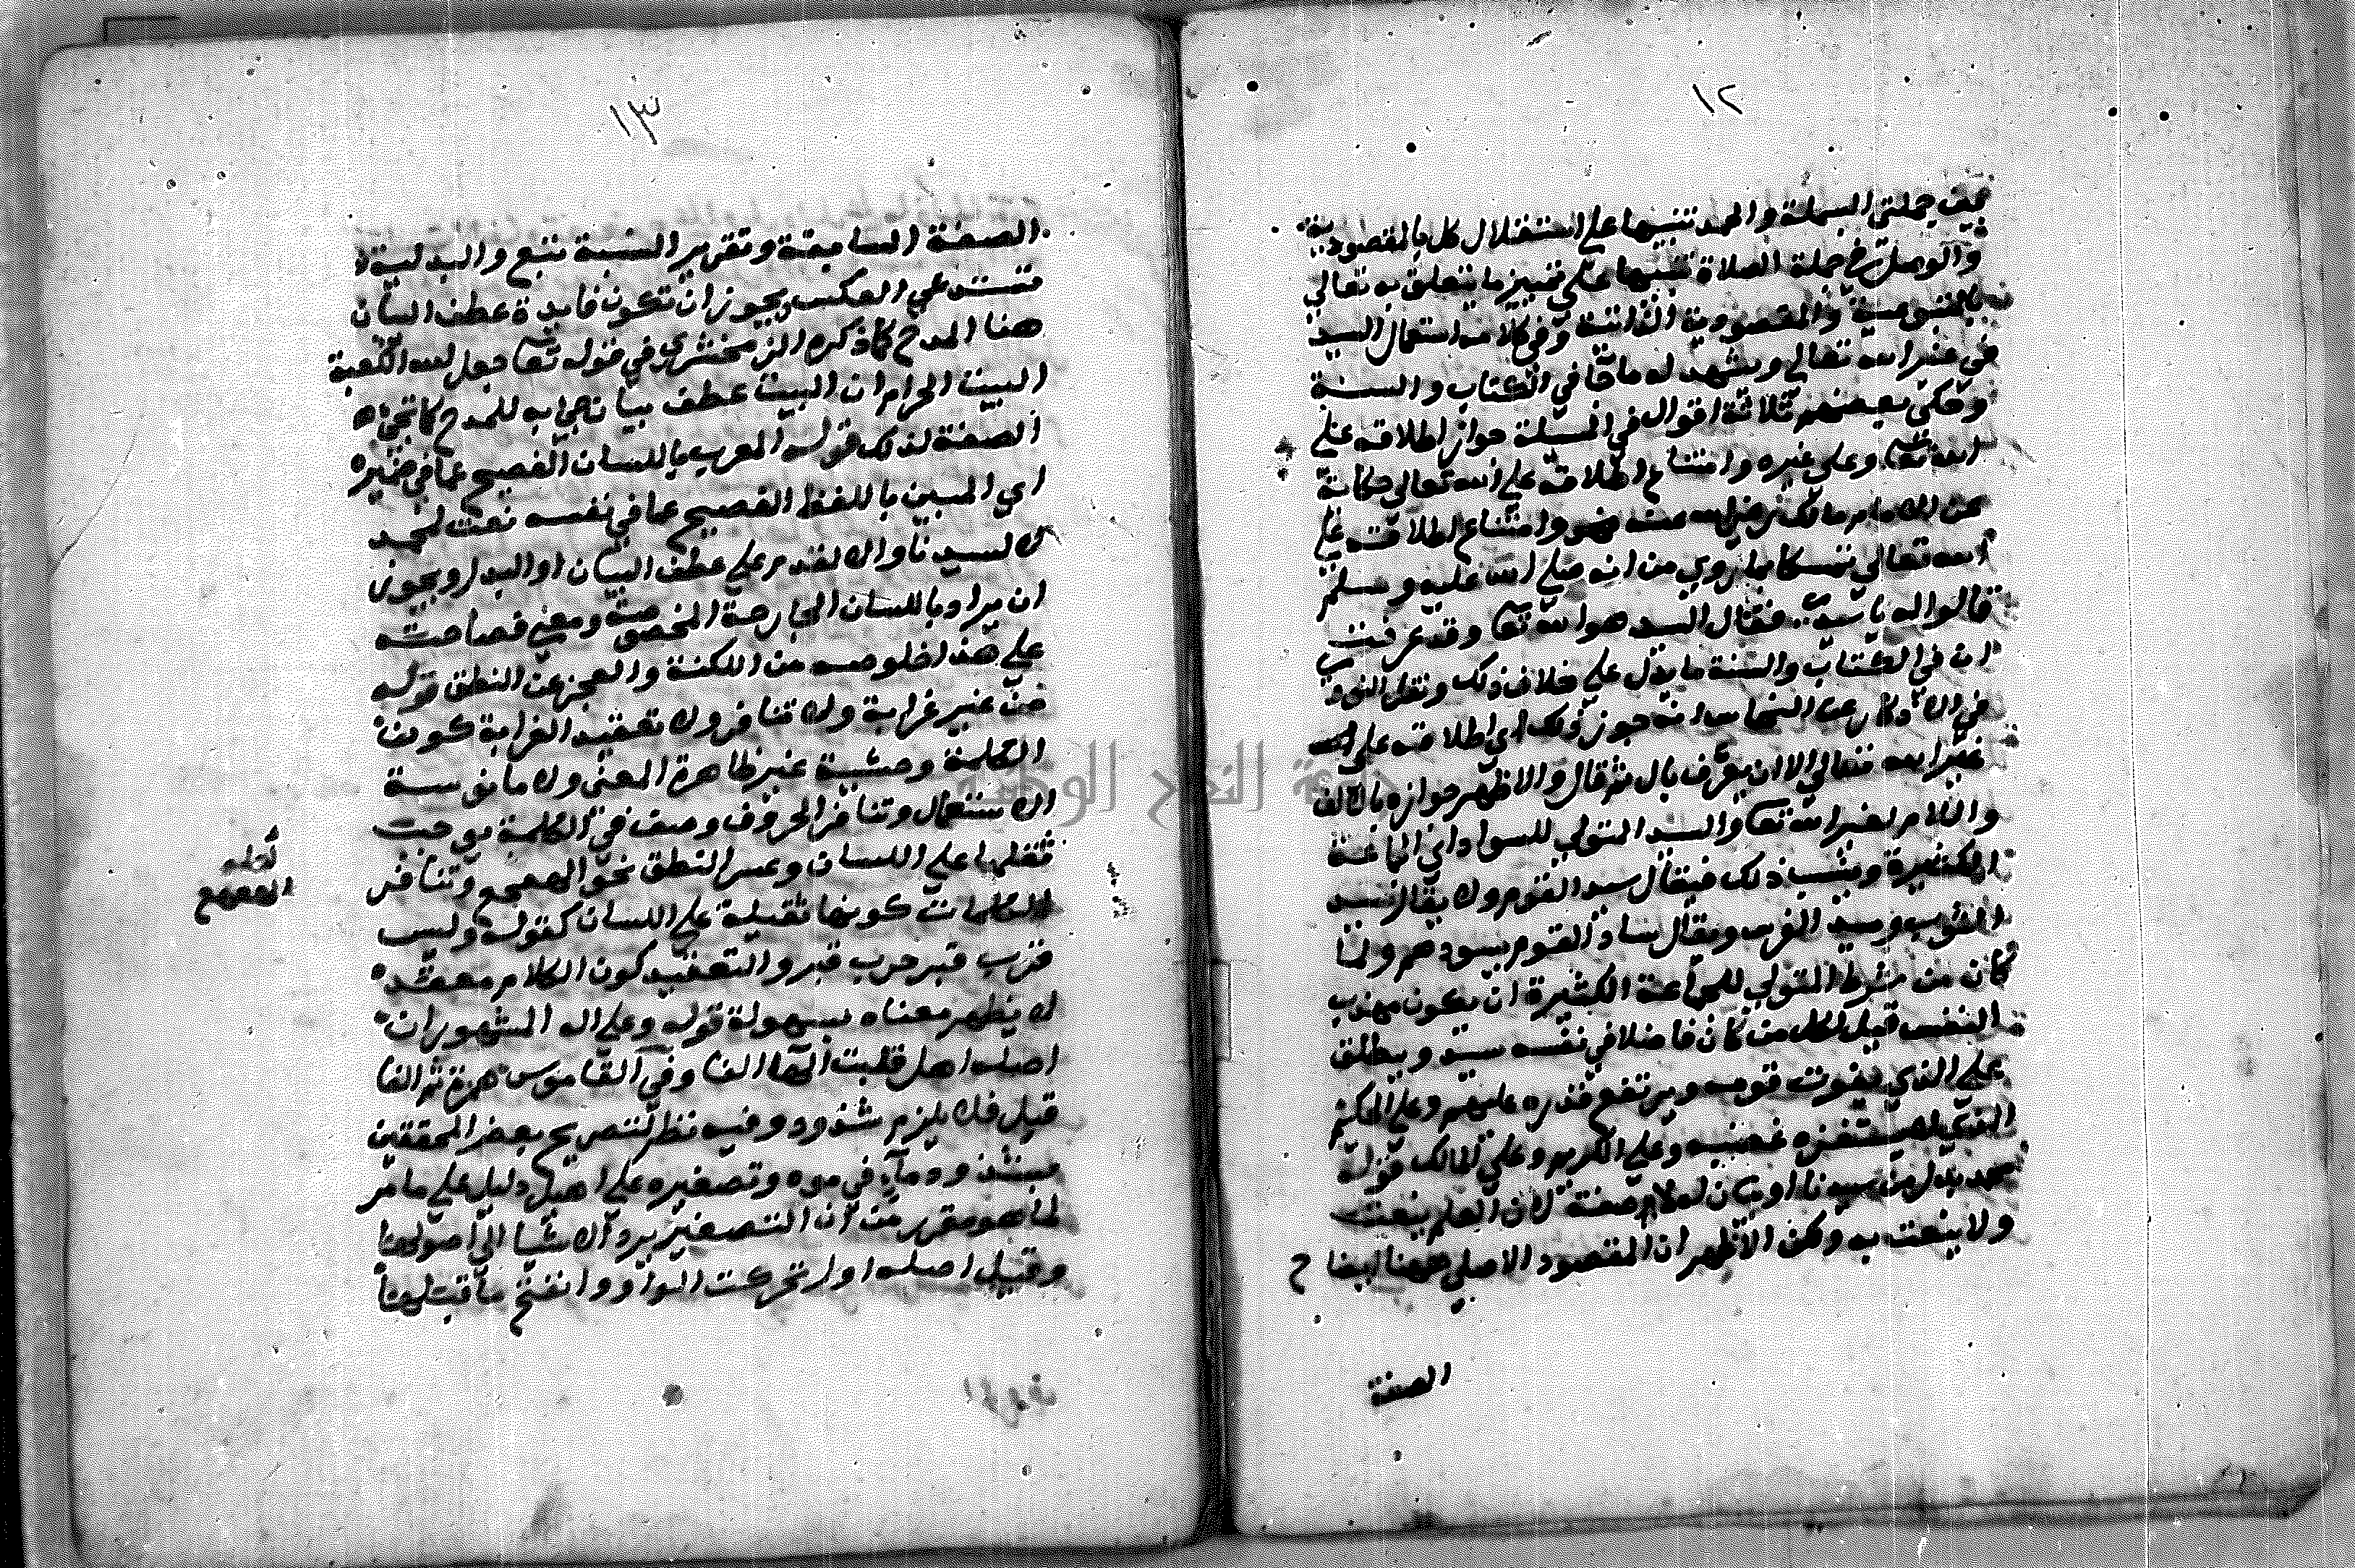 ١٢
بين جملتي البسملة والحمد تنبيها على استقلال كل بالمقصودية
والوصل في جملة الصلاة تنبيها على تمييز ما يتعلق به تعالى
والمقصودية الذاتية وفي كلامه استعمال السيد
في غير الله تعالى ويشهد له ما في الكتاب والسنة
وحكى بعضهم ثلاثة اقوال في المسئلة جواز اطلاقه على
الله تعا وعلى غيره وامتناع اطلاقه على الله تعالى حكاية
عن الامام مالك رضي الله عنه وامتناع اطلاقه على
الله تعالى تمسكا بما روي من انه صلى الله عليه وسلم
قالوا له يا سيد فقال السيد هو الله تعا وقد عرفت
ان في الكتاب والسنة ما يدل على خلاف ذلك ونقل النووي
في الاذكار عن النحاس انه جوز ذلك اي اطلاقه على
غير الله تعالى الا ان يعرف بال ثم قال والاظهر جوازه بالالف
واللام لغير الله تعا والسيد المتولي للسواد اي الجماعة
الكثيرة وينسب ذلك فيقال سيد القوم ولا يقال سيد
الثوب وسيد الفرس ويقال ساد القوم يسودهم ولما
كان من شرط المتولي للجماعة الكثيرة ان يكون مهذب
النفس قيل لكل من كان فاضلا في نفسه سيد ويطلق
على الذي يفوق قومه ويرتفع قدره عليهم وعلى الحكيم
الذي لا يستفزه غضبه وعلى الكريم وعلى المالك قوله
محمد بدل من سيدنا او بيان له لا صفة لان العلم ينعت
ولا ينعت به ولكن الاظهر ان المقصود الاصلي ههنا ايضاح
الصفة
١٣
الصفة السابقة وتقرير النسبة تتبع والبدلية
تستدعي العكس ويجوز ان تكون فايدة عطف البيان
هنا المدح كما ذكره الزمخشري في قوله تعا جعل الله الكعبة
البيت الحرام ان البيت عطف بيان جئ به للمدح كما تجئ
الصفة لذلك قوله المعرب باللسان الفصيح عما في ضميره
اي المبين باللفظ الفصيح عما في نفسه نعت لمحمد
لا لسيدنا والا لقدم على عطف البيان او البدل ويجوز
ان يراد باللسان الجارحة المخصوصة ومعنى فصاحته
على هذا خلوصه من اللكنة والعجز عن النطق قوله
من غير غرابة ولا تنافر ولا تعقيد الغرابة كون
الكلمة وحشية غير ظاهرة المعنى ولا مانوسة
الاستعمال وتنافر الحروف وصف في الكلمة يوجب
ثقلها على اللسان وعسر النطق نحو الهعجع وتنافر
الكلمات كونها ثقيلة على اللسان كقوله وليس
قرب قبر حرب قبر والتعقيد كون الكلام معقدا
لا يظهر معناه بسهولة قوله وعلى اله المشهور ان
اصله اهل قلبت الها الفا وفي القاموس همزة ثم الفا
قيل فلا يلزم شذوذ وفيه نظر لتصريح بعض المحققين
بشذوذ ماء في موه وتصغيره على اهيل دليل على ما مر
لما هو مقرر من ان التصغير يرد الاشيا الى اصولها
وقيل اصله اول تحركت الواو وانفتح ما قبلها